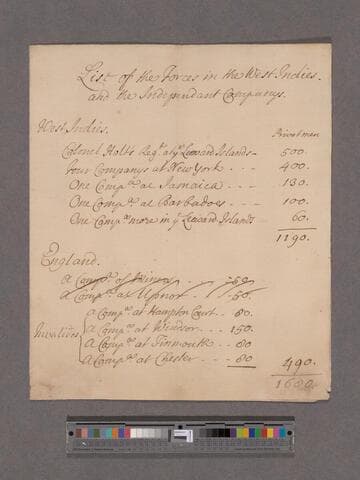 List of the Forces in the West Indies
and the Independant Companys.
Privat men
West Indies.
Colonel Holts Regt at ye Leeward Islands 500
four Companys at New York 400
One Compa at Jamaica 130
One Compa at Barbadoes 100
One Compa more in ye Leeward Islands 60
1190
England.
A Compa of
A Compa at Upnor 50
Invalides
a Compa at Hampton Court 80
a Compa at Windsor 150
a Compa at Tinmouth 80
a Compa at Chester 80
490
1680